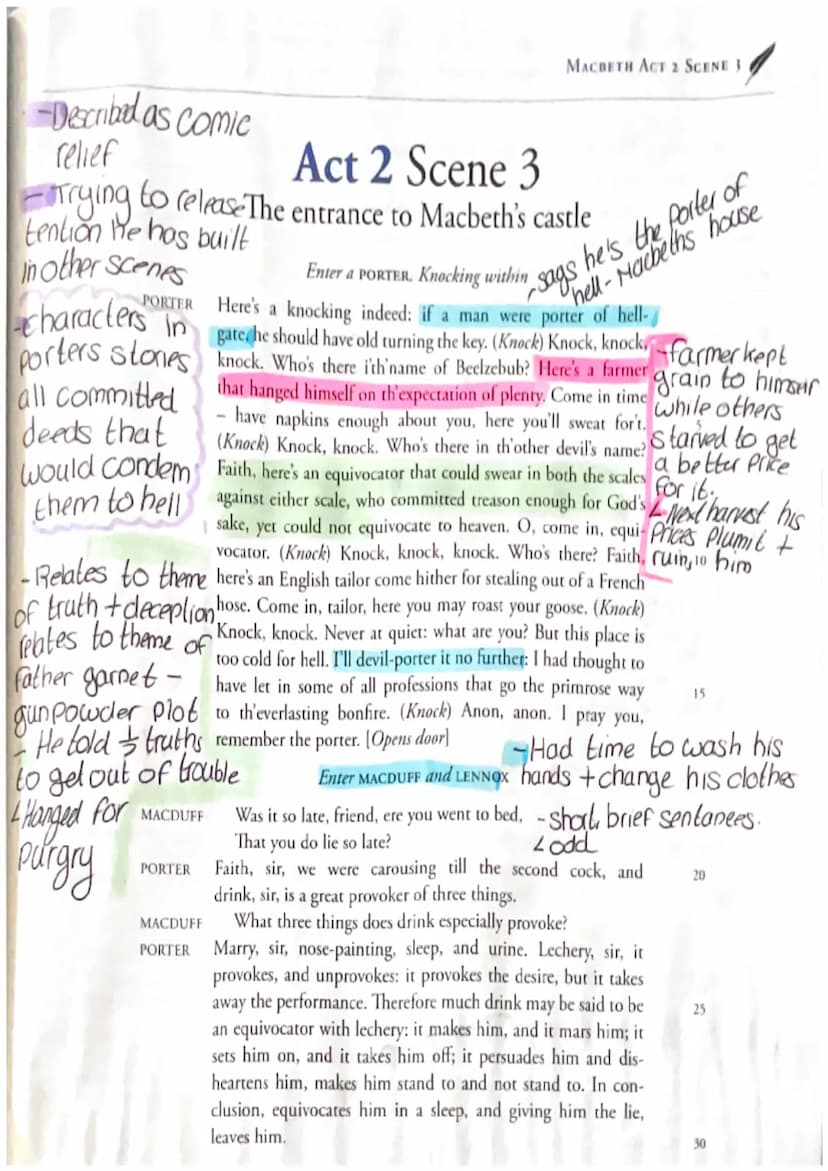 MACBETH ACT 2 SCENE 3
-Described as comic
relief
- Trying to release
tention he has built
in other scenes
Act 2 Scene 3
The entrance to Macbeth's castle
Enter a PORTER. Knocking within
- says he's the porter of
hell - Macbeths house
-characters in
porters stories
all committed
deeds that
would condem
them to hell
PORTER Here's a knocking indeed: if a man were porter of hell-
gate, he should have old turning the key. (Knock) Knock, knock,
knock. Who's there i'th'name of Beelzebub? Here's a farmer
that hanged himself on th'expectation of plenty. Come in time
– have napkins enough about you, here you'll sweat for't.
(Knock) Knock, knock. Who's there in th'other devil's name?
Faith, here's an equivocator that could swear in both the scales
against either scale, who committed treason enough for God's
sake, yet could not equivocate to heaven. O, come in, equi-
vocator. (Knock) Knock, knock, knock. Who's there? Faith,
here's an English tailor come hither for stealing out of a French
hose. Come in, tailor, here you may roast your goose. (Knock)
Knock, knock. Never at quiet: what are you? But this place is
too cold for hell. I'll devil-porter it no further: I had thought to
have let in some of all professions that go the primrose way
to th'everlasting bonfire. (Knock) Anon, anon. I pray you,
remember the porter. [Opens door]
10
15
-farmer kept
grain to himself
while others
starved to get
a better price
for it.
Next harvest his
prices plumit +
ruin him
- Relates to theme
of truth + deception
relates to theme of
father garnet -
gunpowder plot
- He told ½ truths
to get out of trouble
Hanged for
purgry
Enter MACDUFF and LENNOX
-Had time to wash his
hands + change his clothes
MACDUFF Was it so late, friend, ere you went to bed,
That you do lie so late?
- short, brief sentances.
odd
PORTER Faith, sir, we were carousing till the second cock, and 20
drink, sir, is a great provoker of three things.
MACDUFF What three things does drink especially provoke?
PORTER Marry, sir, nose-painting, sleep, and urine. Lechery, sir, it
provokes, and unprovokes: it provokes the desire, but it takes
away the performance. Therefore much drink may be said to be 25
an equivocator with lechery: it makes him, and it mars him; it
sets him on, and it takes him off; it persuades him and dis-
heartens him, makes him stand to and not stand to. In con-
clusion, equivocates him in a sleep, and giving him the lie,
leaves him. 30